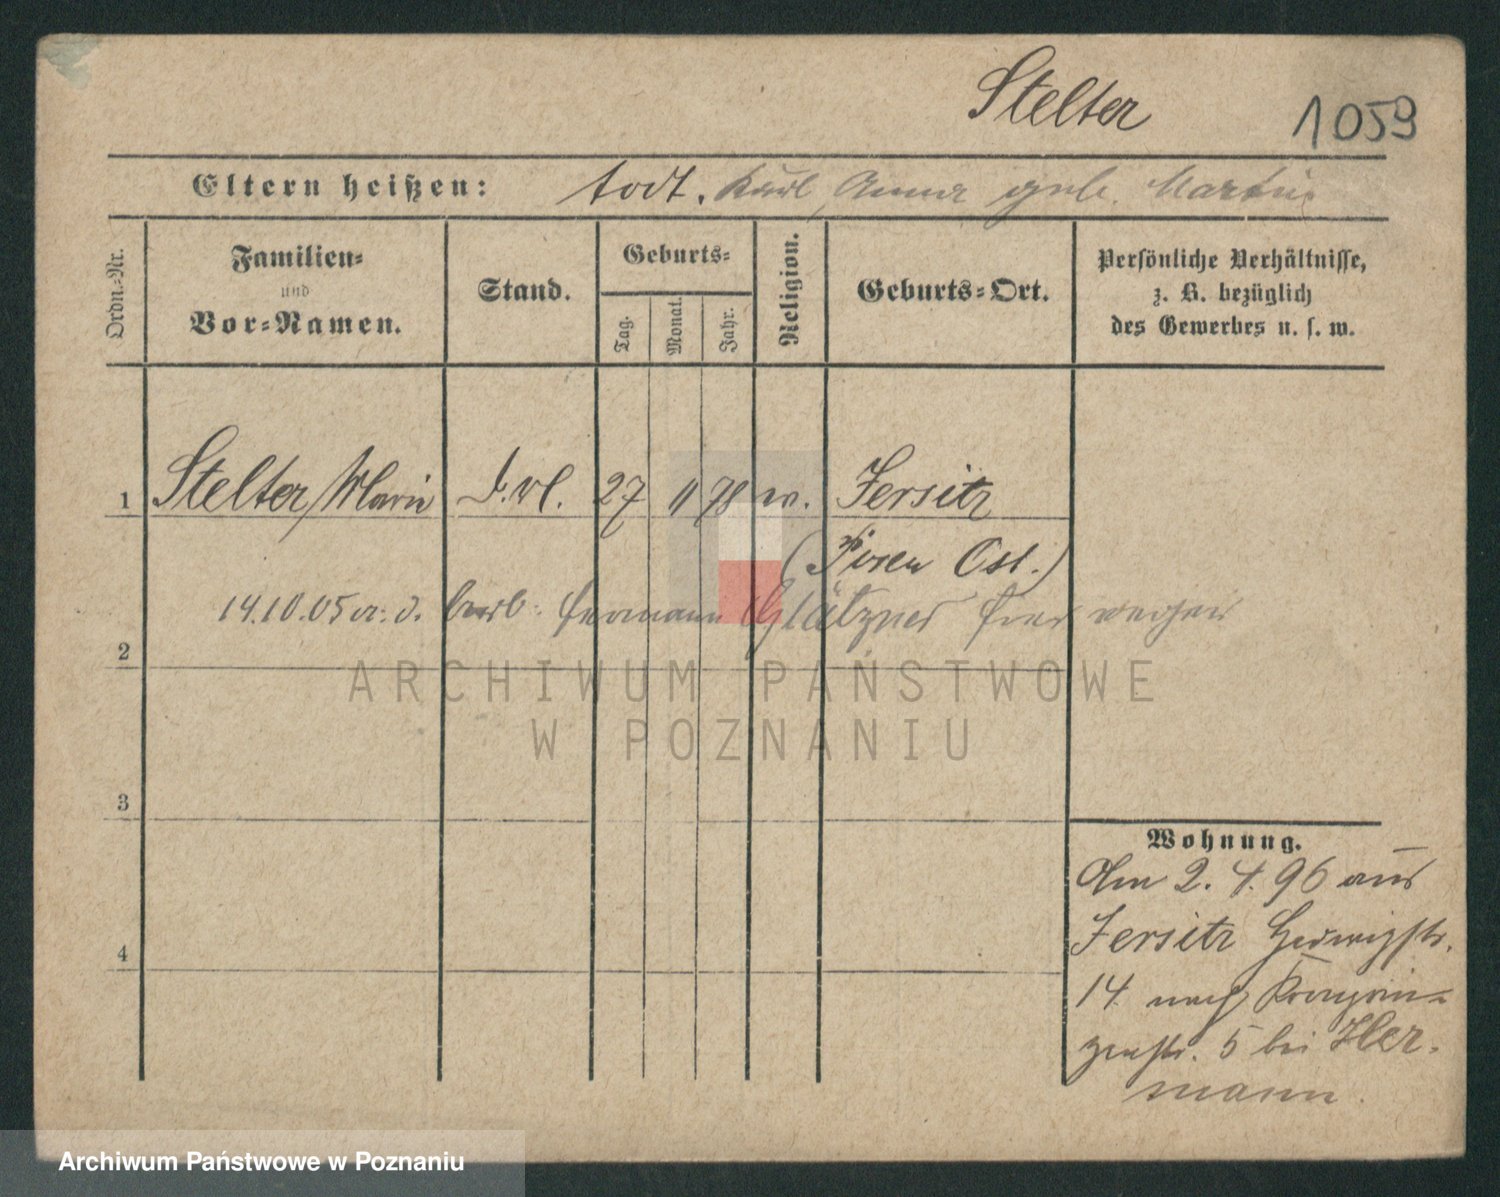 Stelter
1059
Eltern heißen: todt. Karl, Anna geb. Martin
Ordn.-Nr.
Familien-
und
Vor-Namen.
Stand.
Geburts-
Tag.
Monat.
Jahr.
Religion.
Geburts-Ort.
Persönliche Verhältnisse,
z. B. bezüglich
des Gewerbes u. s. w.
1 Stelter, Marie 27 11 78 Jersitz
(Posen Ost.)
14.10.05 Hermann
2
ARCHIWUM PAŃSTWOWE
W POZNANIU
3
4
Wohnung.
Am 2. 4. 96 aus
Jersitz Hedwigstr.
14 nach Kronprin-
zenstr. 5 bei Her-
mann.
Archiwum Państwowe w Poznaniu